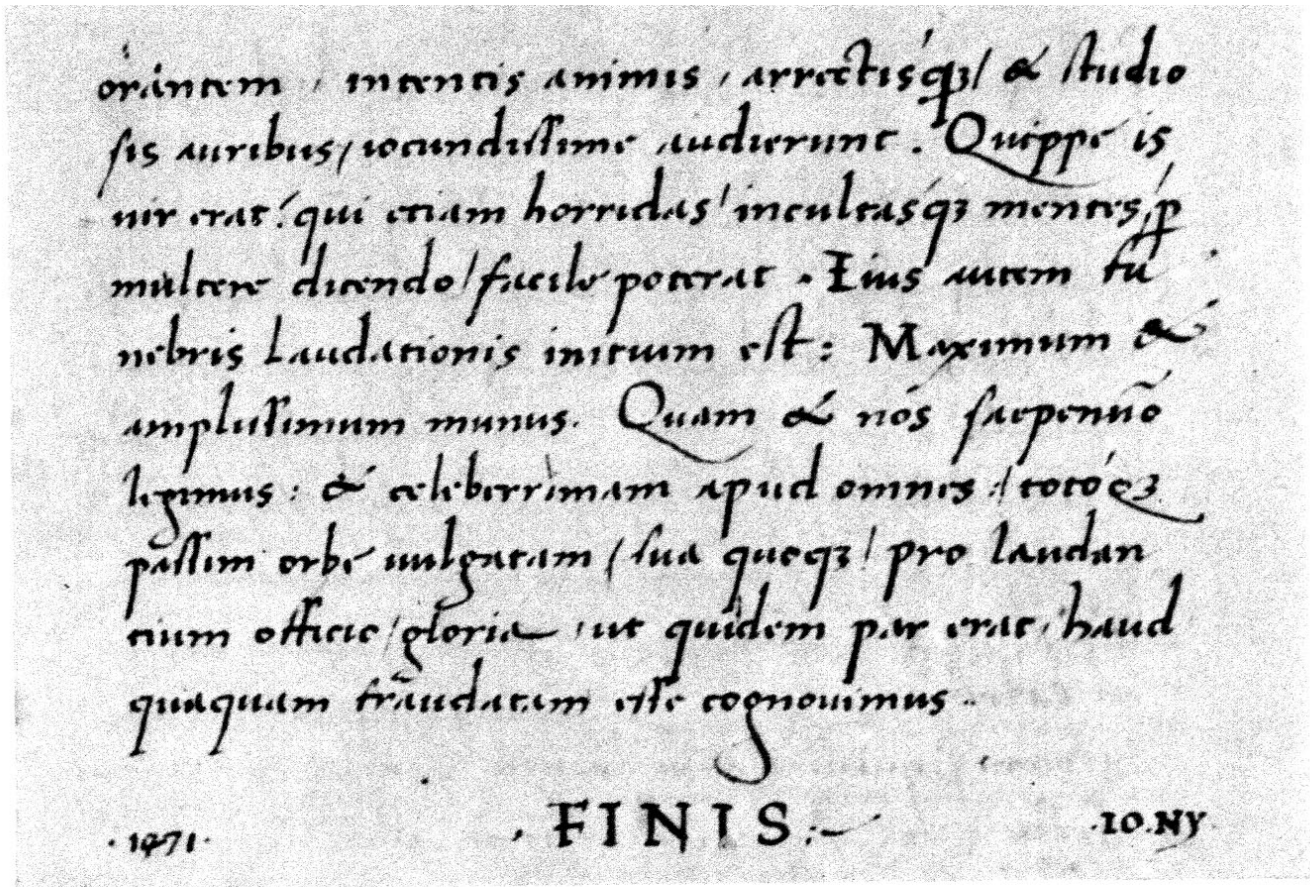 orantem, intentis animis, arrectisq́ꝫ/ & studio
sis auribus/ iocundissime audierunt. Quippe is
uir erat: qui etiam horridas/ incultasq́ꝫ mentes, ꝑ
mulcere dicendo/ facile poterat. Eius autem fu
nebris Laudationis initium est: Maximum &
amplissimum munus. Quam & nos saepenūo
legimus: & celeberrimam apud omnes:/ totoq́ꝫ
passim orbe uulgatam/ sua quoqꝫ/ pro laudan
tium officio/ gloria, ut quidem par erat, haud
quaquam fraudatam esse cognouimus.
·1471· · FINIS :~ ·IO·NY